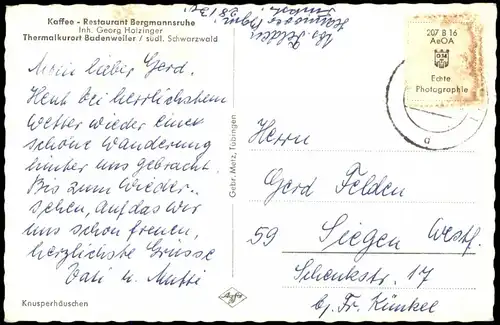 Kaffee - Restaurant Bergmannsruhe
Inh. Georg Halzinger
Thermalkurort Badenweiler / südl. Schwarzwald
Abs. Felden
Hannover
Mein lieber Gerd.
Heut bei herrlichstem
Wetter wieder eine
schöne Wanderung
hinter uns gebracht.
Bis zum Wieder-
sehen, auf das wir
uns schon freuen,
herzlichste Grüsse
Vati u. Mutti
Knusperhäuschen
Gebr. Metz, Tübingen
Agfa
207 8 16
AeOA
Echte
Photographie
a
Herrn
Gerd Felden
59 Siegen Westf.
Schenkstr. 17
b/ Fr. Künkel